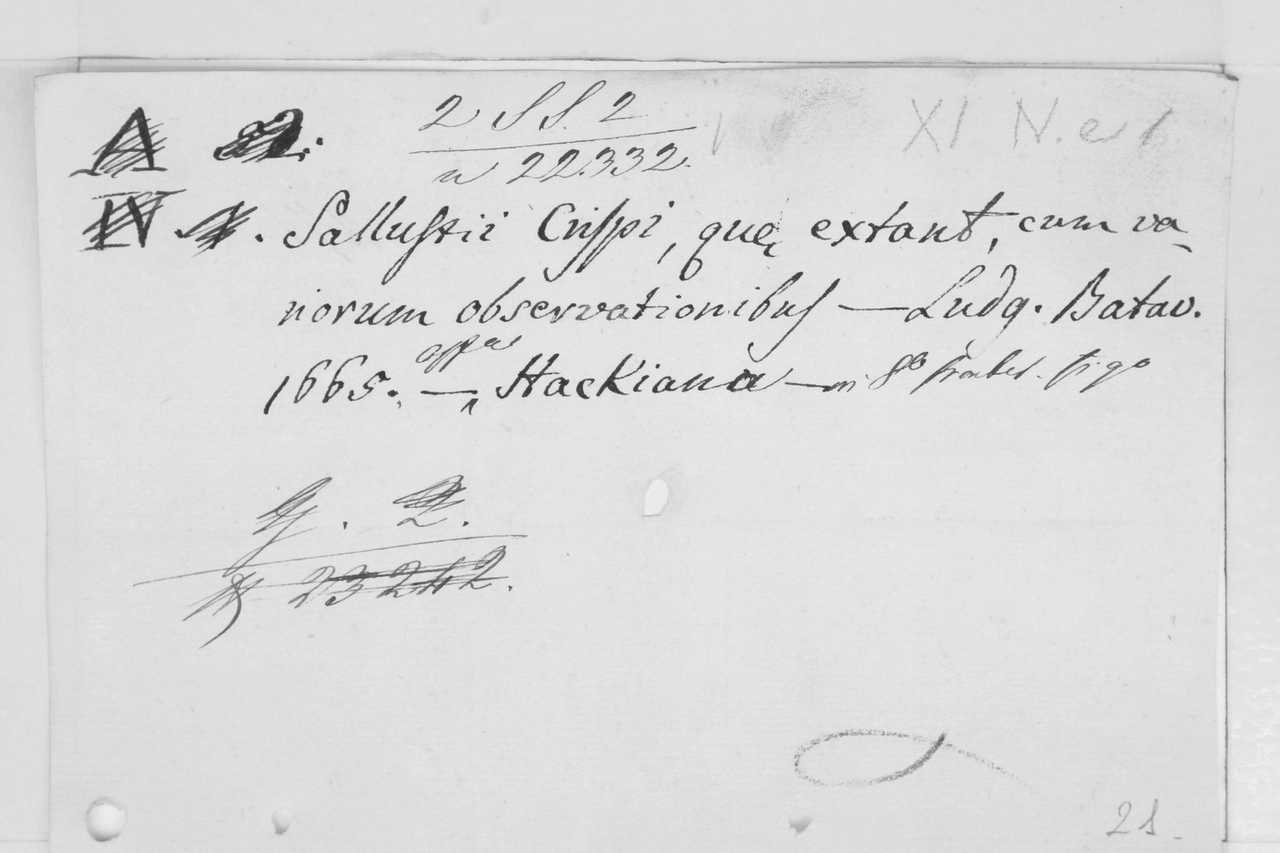 2 SS. 2
n 22332.
XI N. e 1.
IV
Sallustii Crispi, quę extant, cum va-
riorum observationibus — Ludg. Batav.
1665. — Hackiana — in 8o
G. 2.
23242.
21.